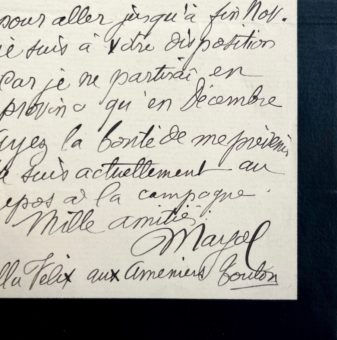 pour aller jusqu'à fin Nov.
je suis à votre disposition
Car je ne partirai en
province qu'en Décembre
Ayez la bonté de me prévenir
je suis actuellement au
repos à la campagne.
Mille amitiés
Mayol
Villa Félix aux Ameniers Toulon